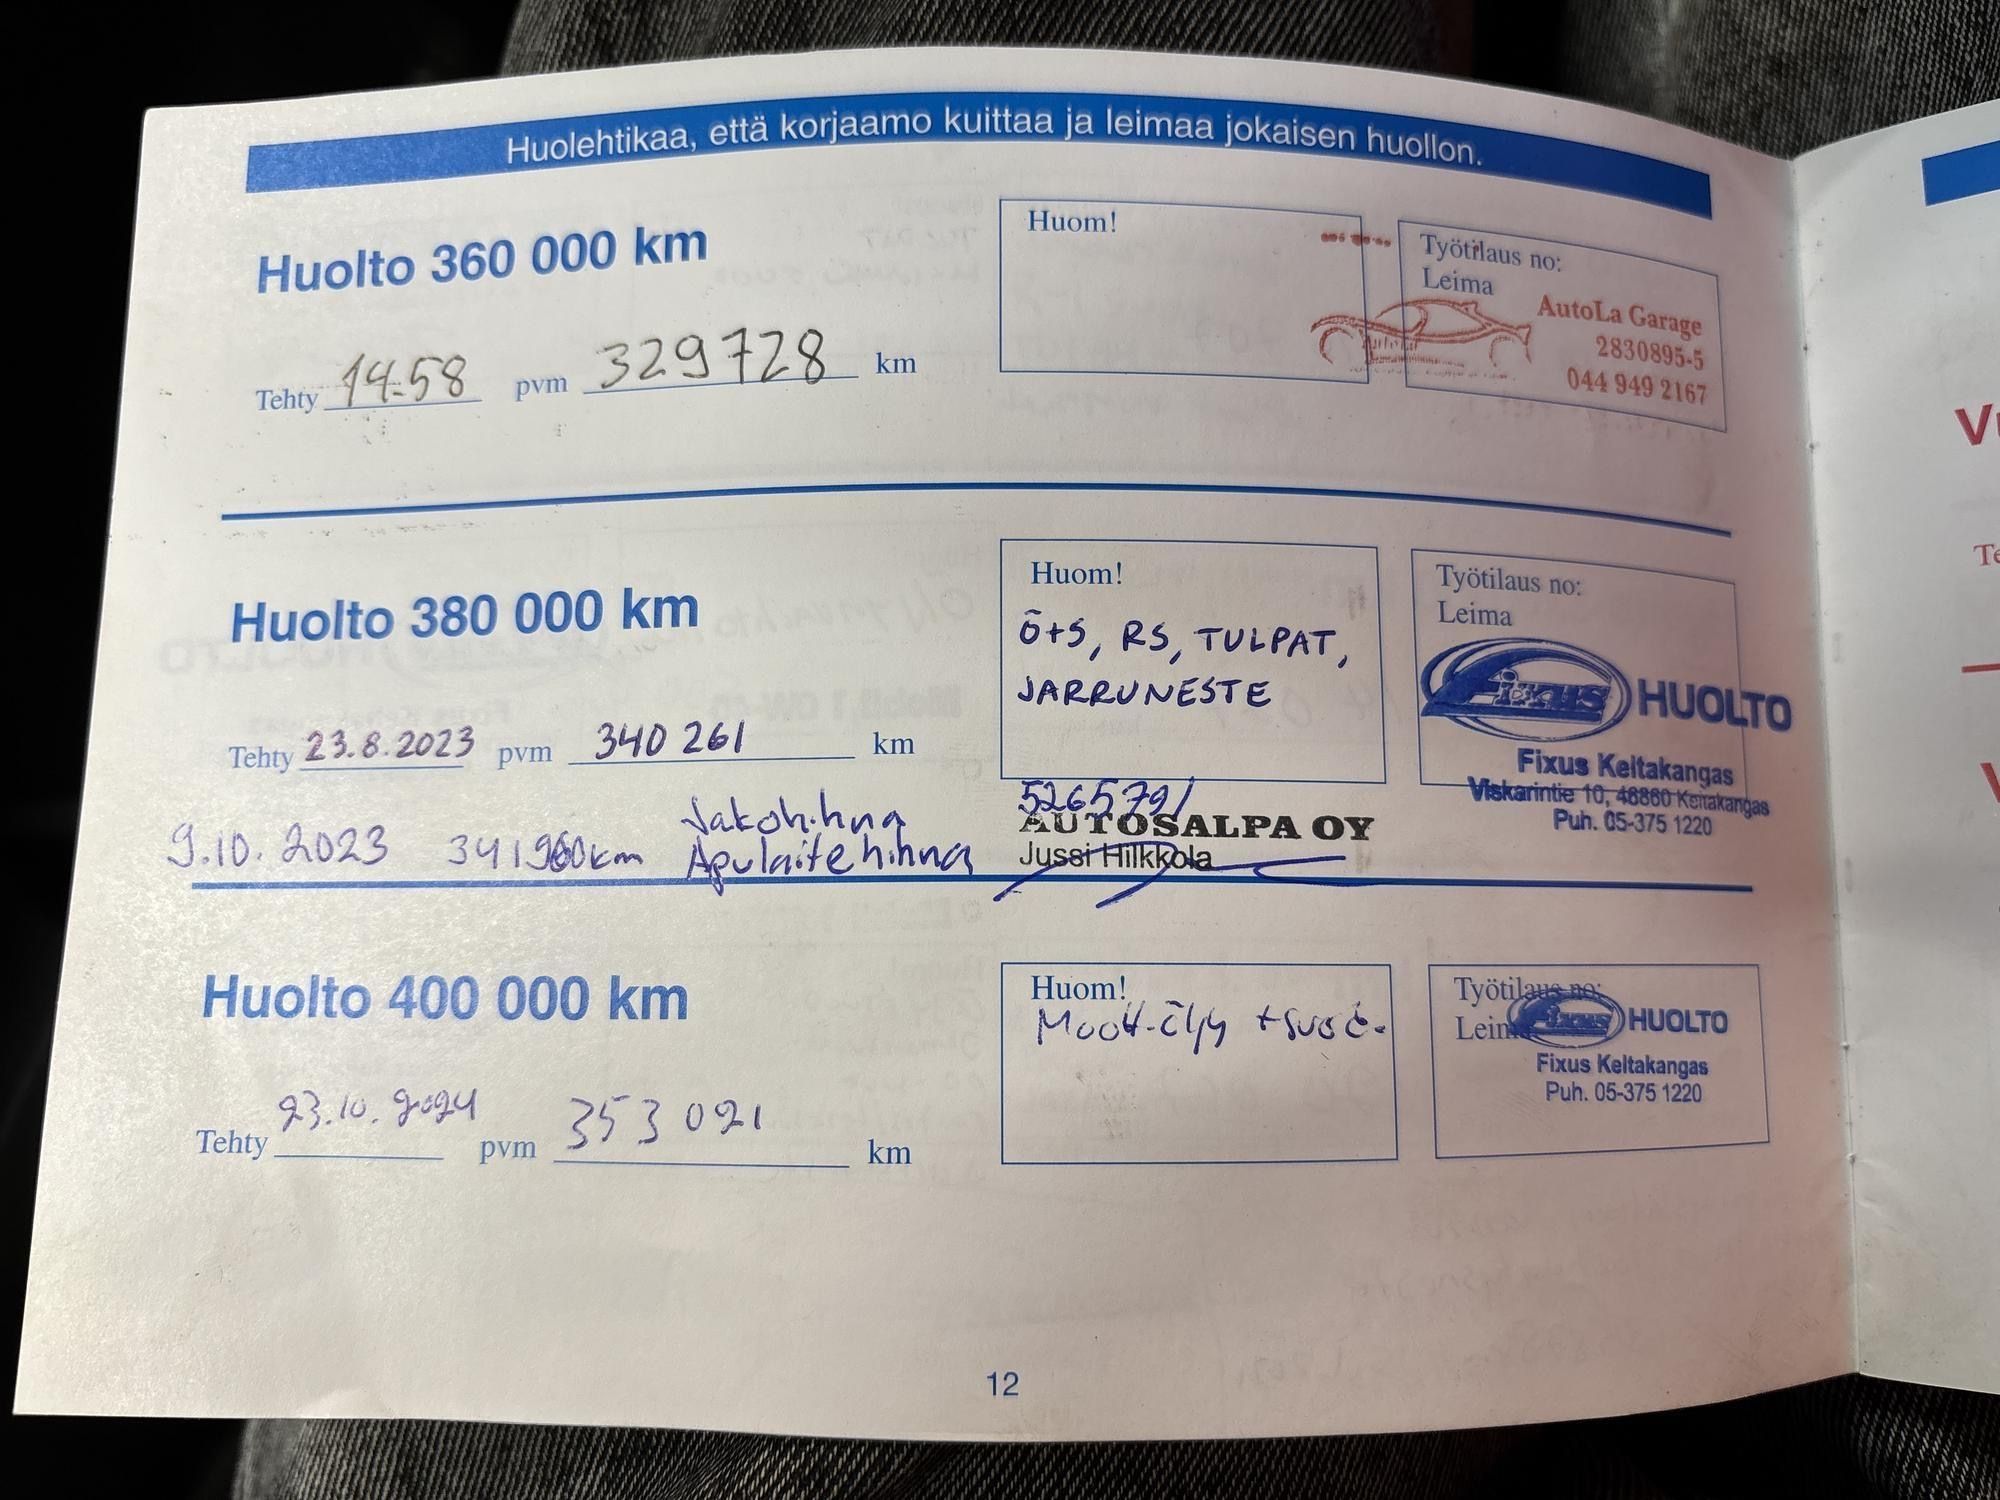 Huolehtikaa, että korjaamo kuittaa ja leimaa jokaisen huollon.
Huolto 360 000 km
Tehty 14:58 pvm 329728 km
Huom!
Työtilaus no:
Leima
AutoLa Garage
2830895-5
044 949 2167
Huolto 380 000 km
Tehty 23.8.2023 pvm 340 261 km
Huom!
Ö+S, RS, TULPAT,
JARRUNESTE
Työtilaus no:
Leima
Fixus HUOLTO
Fixus Keltakangas
Viskarintie 10, 46860 Keltakangas
Puh. 05-375 1220
9.10.2023 km Jakohihna
Apulaitehihna
526579/
AUTOSALPA OY
Jussi Hilkkola
Huolto 400 000 km
Tehty 23.10.2024 pvm 353 021 km
Huom!
Moott-öljy + suod.
Työtilaus no:
Leima
Fixus HUOLTO
Fixus Keltakangas
Puh. 05-375 1220
12